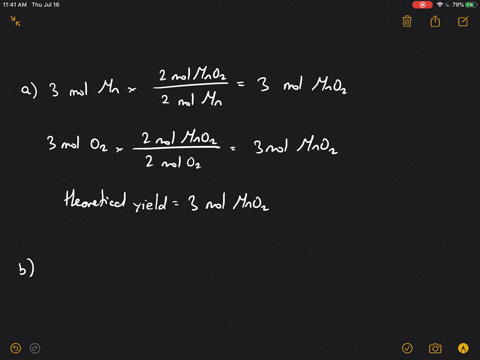 11:41 AM Thu Jul 16 79%
a) 3 mol Mn × 2 mol MnO₂ / 2 mol Mn = 3 mol MnO₂
3 mol O₂ × 2 mol MnO₂ / 2 mol O₂ = 3 mol MnO₂
theoretical yield = 3 mol MnO₂
b)